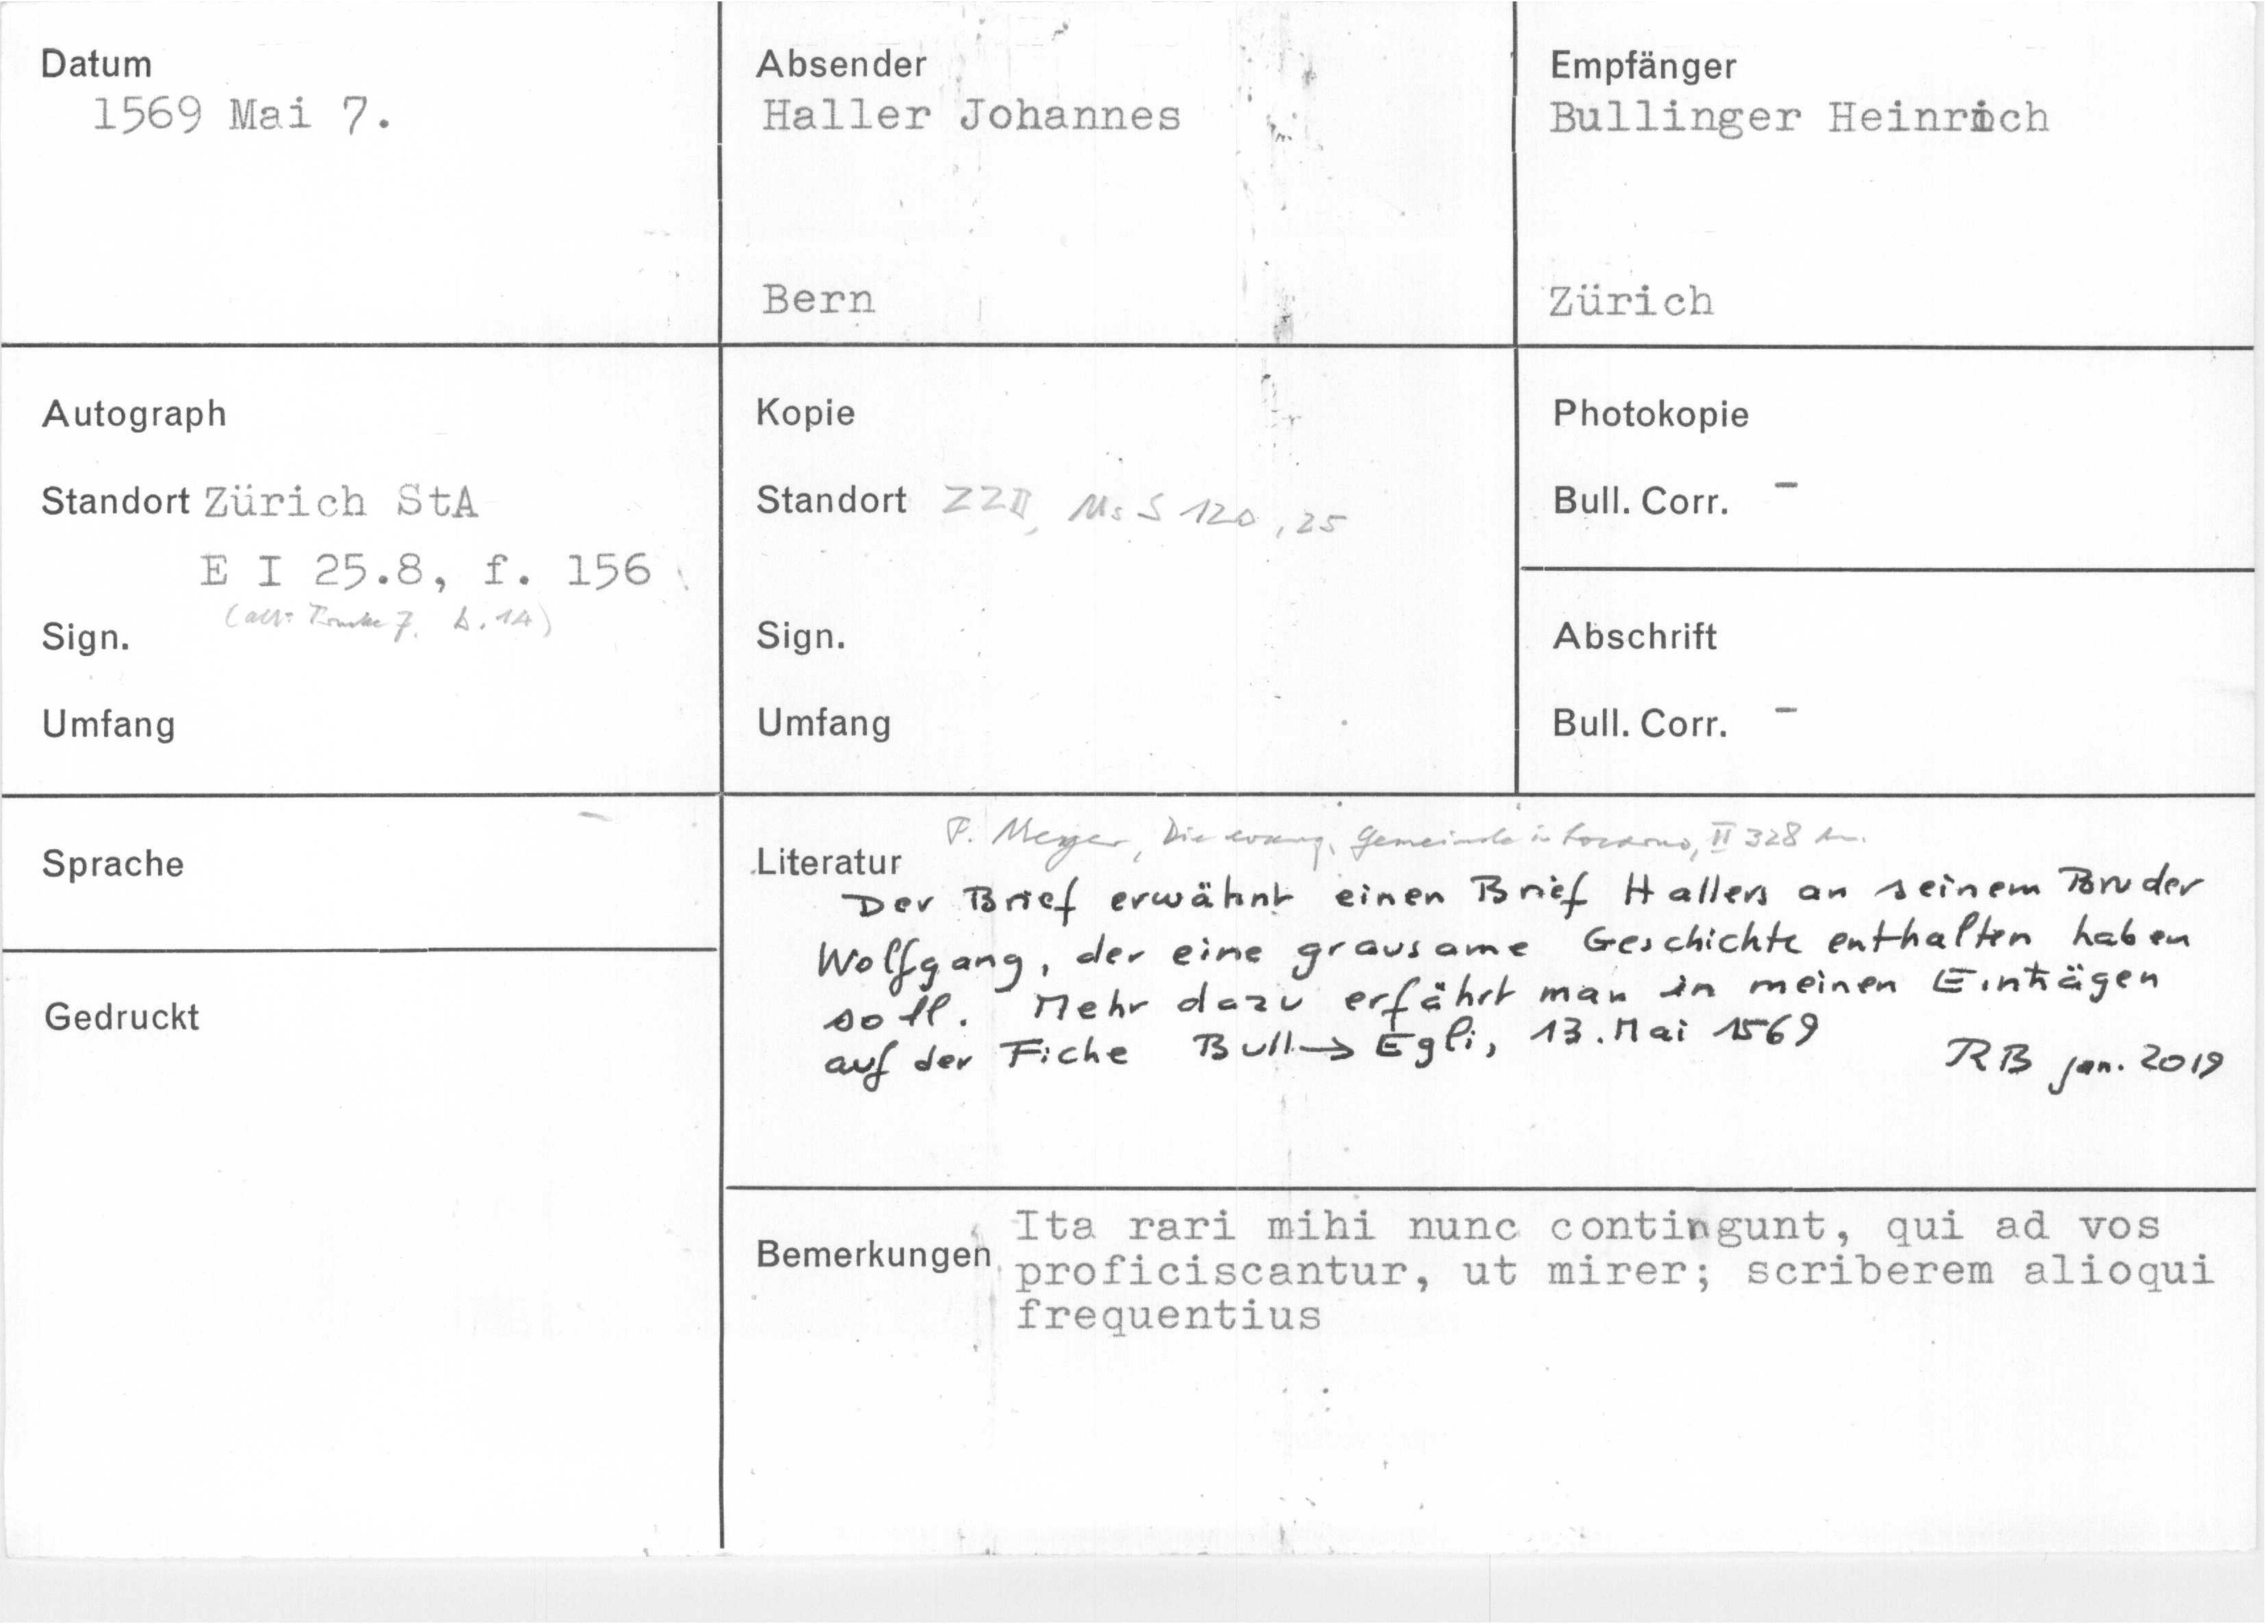 Datum
1569 Mai 7.
Absender
Haller Johannes
Bern
Empfänger
Bullinger Heinrich
Zürich
Autograph
Standort Zürich StA
E I 25.8, f. 156
(alt: 7. b. 14)
Sign.
Umfang
Kopie
Standort ZZB, Ms S 120, 25
Sign.
Umfang
Photokopie
Bull. Corr. –
Abschrift
Bull. Corr. –
Sprache
Gedruckt
F. Meyer, Die evang. Gemeinde in Locarno, II 328
Literatur
Der Brief erwähnt einen Brief Hallers an seinem Bruder
Wolfgang, der eine grausame Geschichte enthalten haben
soll. Mehr dazu erfährt man in meinen Einträgen
auf der Fiche Bull → Egli, 13. Mai 1569
RB Jan. 2019
Bemerkungen
Ita rari mihi nunc contingunt, qui ad vos
proficiscantur, ut mirer; scriberem alioqui
frequentius